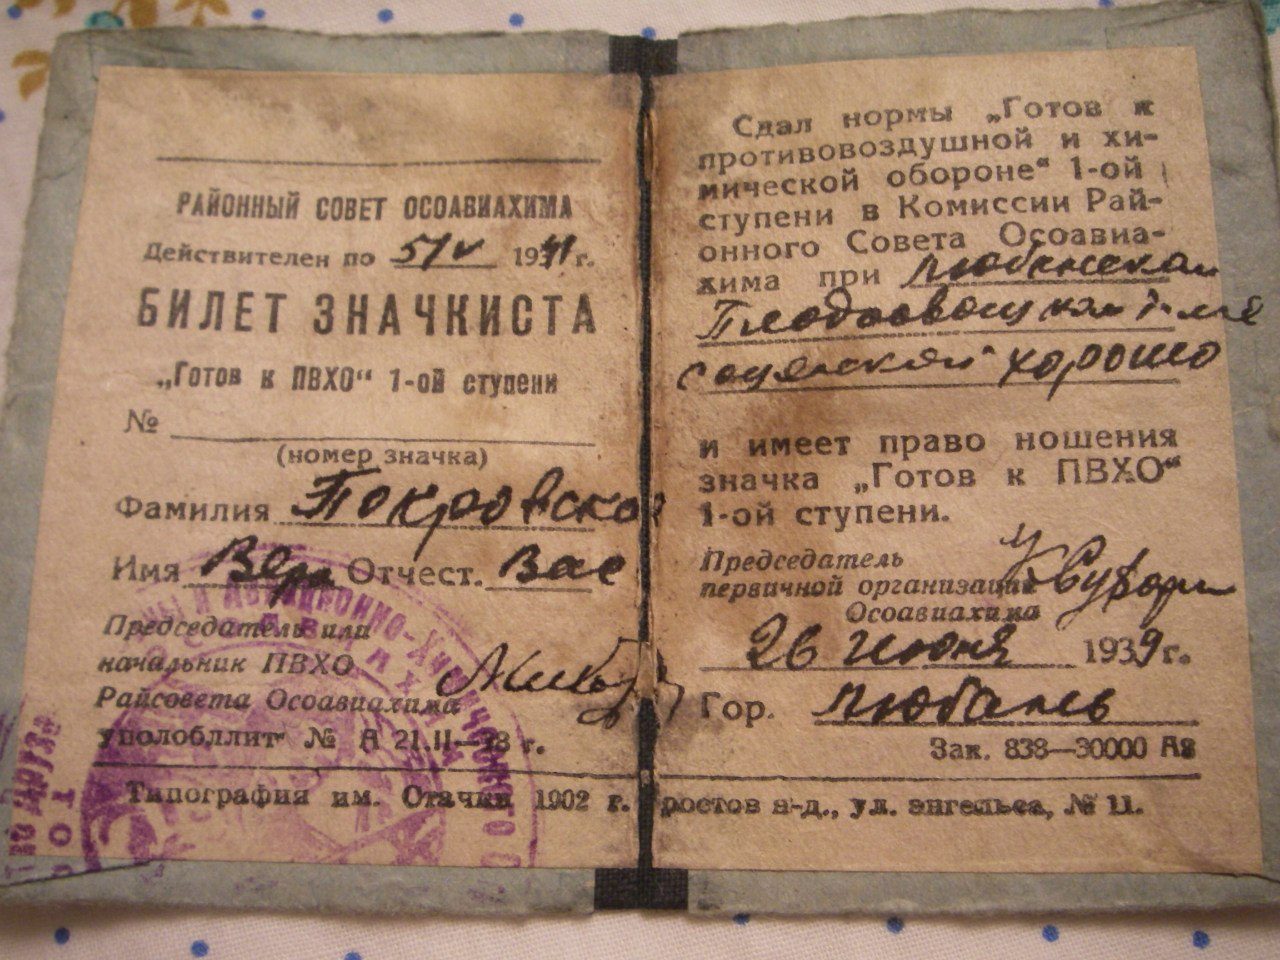 РАЙОННЫЙ СОВЕТ ОСОАВИАХИМА
Действителен по 5/V 1941 г.
БИЛЕТ ЗНАЧКИСТА
„Готов к ПВХО“ 1-ой ступени
№
(номер значка)
Фамилия Покровская
Имя Вера Отчест. Вас
Председатель или
начальник ПВХО
Райсовета Осоавиахима
уполобллит № А 21.II—38 г.
Типография им. Стачки 1902 г.
Сдал нормы „Готов к
противовоздушной и хи-
мической обороне“ 1-ой
ступени в Комиссии Рай-
онного Совета Осоавиа-
хима при Любанской
хорошо
и имеет право ношения
значка „Готов к ПВХО“
1-ой ступени.
Председатель
первичной организации
Осоавиахима
26 июня 1939 г.
Гор. Любань
Зак. 838—30000
ростов н-д., ул. энгельса, № 11.